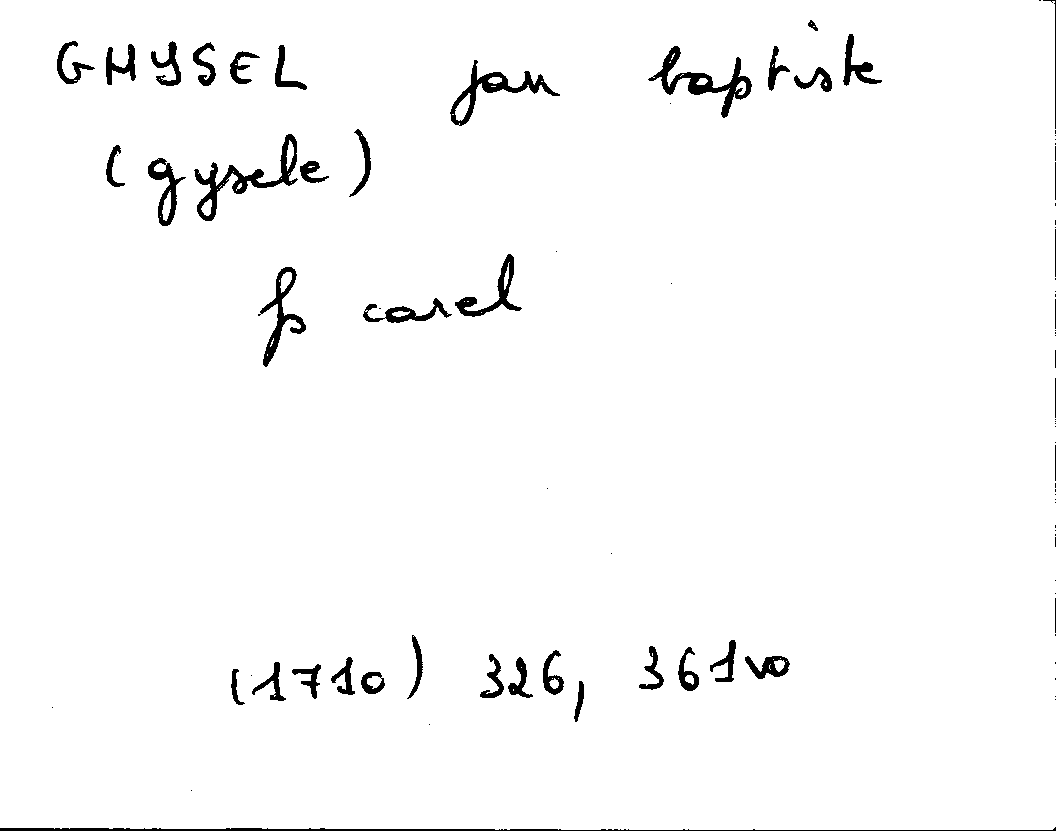 GHYSEL jan baptiste
(gysele)
fs carel
(1710) 326, 361vo